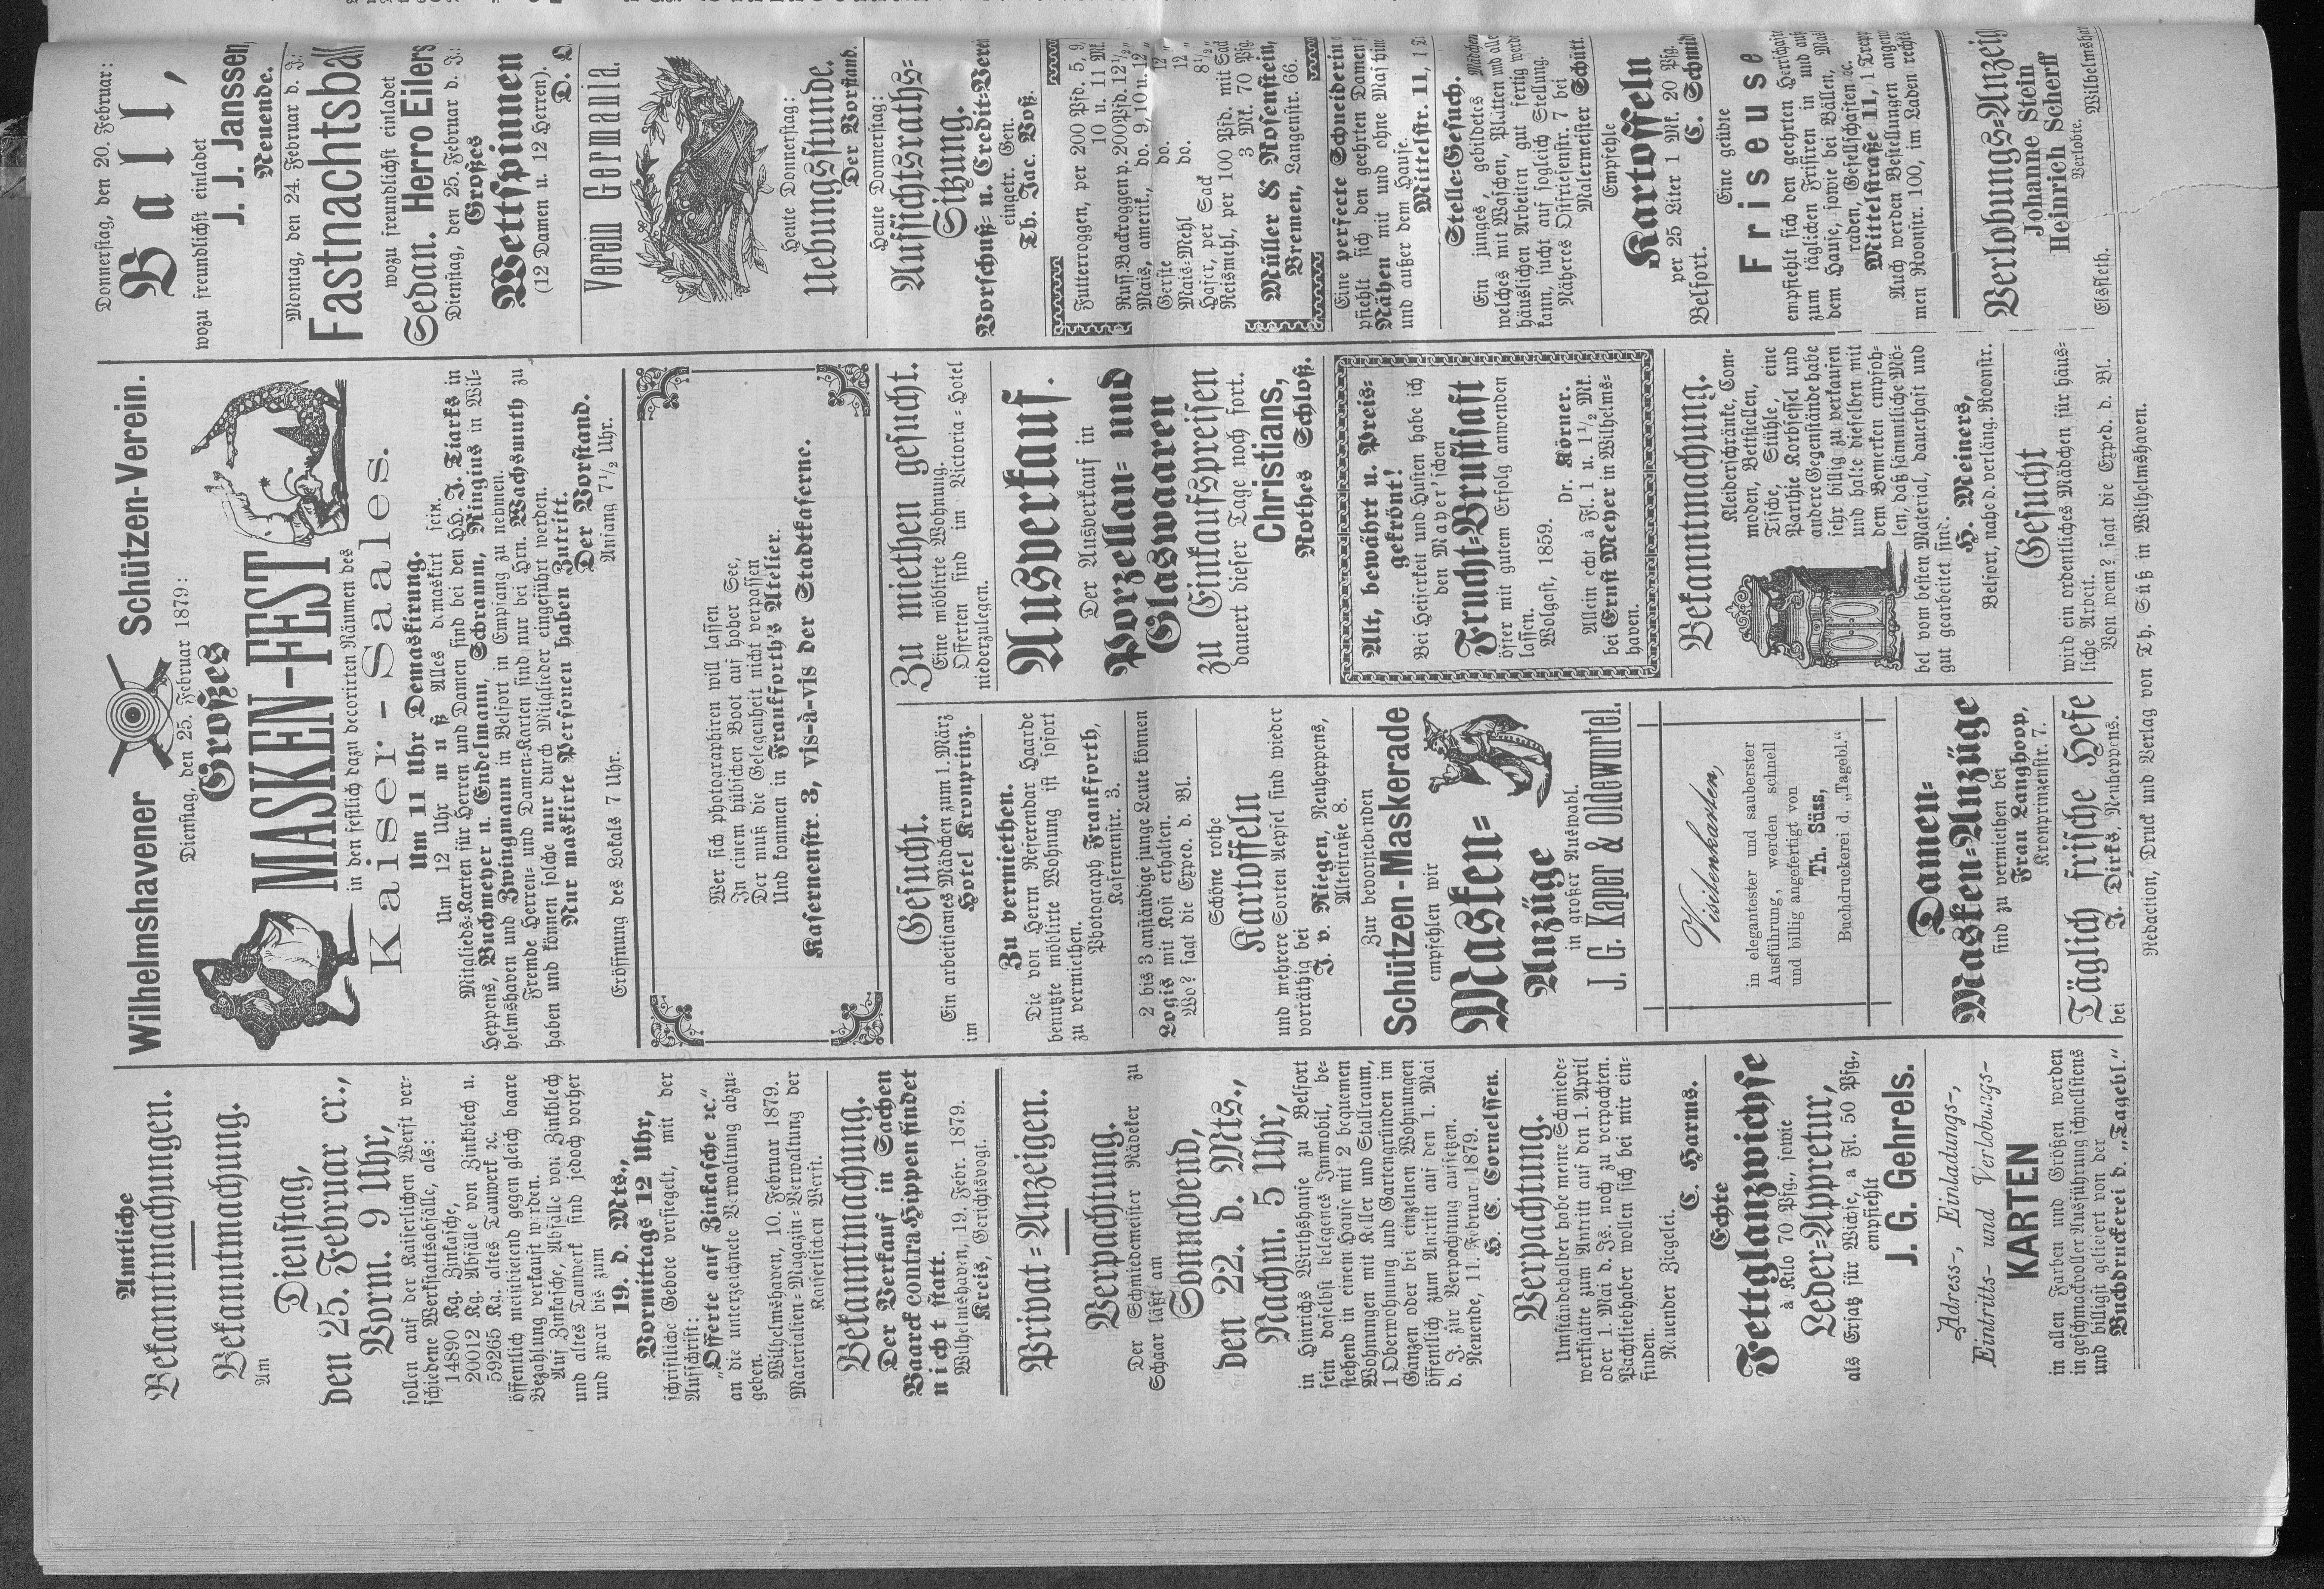 Amtliche
Bekanntmachungen.
Bekanntmachung.
Am
Dienstag,
den 25. Februar cr.,
Vorm. 9 Uhr,
sollen auf der Kaiserlichen Werft ver-
schiedene Werkstattsabfälle, als:
14890 Kg. Zinkasche,
20012 Kg. Abfälle von Zinkblech u.
59265 Kg. altes Tauwerk ꝛc.
öffentlich meistbietend gegen gleich baare
Bezahlung verkauft werden.
Auf Zinkasche, Abfälle von Zinkblech
und altes Tauwerk sind jedoch vorher
und zwar bis zum
19. d. Mts.,
Vormittags 12 Uhr,
schriftliche Gebote versiegelt, mit der
Aufschrift:
„Offerte auf Zinkasche ꝛc.“
an die unterzeichnete Verwaltung abzu-
geben.
Wilhelmshaven, 10. Februar 1879.
Materialien-Magazin-Verwaltung der
Kaiserlichen Werft.
Bekanntmachung.
Der Verkauf in Sachen
Baarck contra Hippen findet
nicht statt.
Wilhelmshaven, 19. Febr. 1879.
Kreis, Gerichtsvogt.
Privat-Anzeigen.
Verpachtung.
Der Schmiedemeister Rädeker zu
Schaar läßt am
Sonnabend,
den 22. d. Mts.,
Nachm. 5 Uhr,
in Hinrichs Wirthshause zu Belfort
sein daselbst belegenes Immobil, be-
stehend in einem Hause mit 2 bequemen
Wohnungen mit Keller und Stallraum,
1 Oberwohnung und Gartengründen im
Ganzen oder bei einzelnen Wohnungen
öffentlich zum Antritt auf den 1. Mai
d. J. zur Verpachtung aufsetzen.
Neuende, 11. Februar 1879.
H. C. Cornelssen.
Verpachtung.
Umständehalber habe meine Schmiede-
werkstätte zum Antritt auf den 1. April
oder 1. Mai d. Js. noch zu verpachten.
Pachtliebhaber wollen sich bei mir ein-
finden.
Neuender Ziegelei.
C. Harms.
Echte
Fettglanzwichse
à Kilo 70 Pfg., sowie
Leder-Appretur,
als Ersatz für Wichse, a Fl. 50 Pfg.,
empfiehlt
J. G. Gehrels.
Adress-, Einladungs-,
Eintritts- und Verlobungs-
KARTEN
in allen Farben und Größen werden
in geschmackvoller Ausführung schnellstens
und billigst geliefert von der
Buchdruckerei d. „Tagebl.“
Wilhelmshavener Schützen-Verein.
Dienstag, den 25. Februar 1879:
Großes
MASKEN-FEST
in den festlich dazu decorirten Räumen des
Kaiser-Saales.
Um 11 Uhr Demaskirung.
Um 12 Uhr muß Alles demaskirt sein.
Mitglieds-Karten für Herren und Damen sind bei den HH. J. Tiarks in
Heppens, Buchmeyer u. Endelmann, Schramm, Ringius in Wil-
helmshaven und Zwingmann in Belfort in Empfang zu nehmen.
Fremde Herren- und Damen-Karten sind nur bei Hrn. Wachsmuth zu
haben und können solche nur durch Mitglieder eingeführt werden.
Nur maskirte Personen haben Zutritt.
Der Vorstand.
Eröffnung des Lokals 7 Uhr. Anfang 7½ Uhr.
Wer sich photographiren will lassen
In einem hübschen Boot auf hoher See,
Der muß die Gelegenheit nicht verpassen
Und kommen in Frankforth's Atelier.
Kasernenstr. 3, vis-à-vis der Stadtkaserne.
Gesucht.
Ein arbeitsames Mädchen zum 1. März
im Hotel Kronprinz.
Zu vermiethen.
Die von Herrn Referendar Haarde
benutzte möblirte Wohnung ist sofort
zu vermiethen.
Photograph Frankforth,
Kasernenstr. 3.
2 bis 3 anständige junge Leute können
Logis mit Kost erhalten.
Wo? sagt die Exped. d. Bl.
Schöne rothe
Kartoffeln
und mehrere Sorten Aepfel sind wieder
vorräthig bei
J. v. Riegen, Neuheppens,
Altestraße 8.
Zur bevorstehenden
Schützen-Maskerade
empfehlen wir
Masken-
Anzüge
in großer Auswahl.
J. G. Kaper & Oldewurtel.
Visitenkarten,
in elegantester und sauberster
Ausführung, werden schnell
und billig angefertigt von
Th. Süss,
Buchdruckerei d. „Tagebl.“
Damen-
Masken-Anzüge
sind zu vermiethen bei
Frau Langhoop,
Kronprinzenstr. 7.
Täglich frische Hefe
bei J. Dirks, Neuheppens.
Zu miethen gesucht.
Eine möblirte Wohnung.
Offerten sind im Victoria-Hotel
niederzulegen.
Ausverkauf.
Der Ausverkauf in
Porzellan- und
Glaswaaren
zu Einkaufspreisen
dauert dieser Tage noch fort.
Christians,
Rothes Schloß.
Alt, bewährt u. Preis-
gekrönt!
Bei Heiserkeit und Husten habe ich
den Mayer'schen
Frucht-Brustsaft
öfter mit gutem Erfolg anwenden
lassen.
Wolgast, 1859. Dr. Körner.
Allein echt à Fl. 1 u. 1½ Mk.
bei Ernst Meyer in Wilhelms-
haven.
Bekanntmachung.
Kleiderschränke, Com-
moden, Bettstellen,
Tische, Stühle, eine
Parthie Korbsessel und
andere Gegenstände habe
sehr billig zu verkaufen
und halte dieselben mit
dem Bemerken empfoh-
len, daß sämmtliche Mö-
bel vom besten Material, dauerhaft und
gut gearbeitet sind.
H. Meiners,
Belfort, nahe d. verläng. Roonstr.
Gesucht
wird ein ordentliches Mädchen für häus-
liche Arbeit.
Von wem? sagt die Exped. d. Bl.
Donnerstag, den 20. Februar:
Ball,
wozu freundlichst einladet
J. J. Janssen,
Neuende.
Montag, den 24. Februar d. J.:
Fastnachtsball
wozu freundlichst einladet
Sedan. Herro Eilers
Dienstag, den 25. Februar d. J.:
Großes
Wettspinnen
(12 Damen u. 12 Herren).
D. O
Verein Germania.
Heute Donnerstag:
Uebungsstunde.
Der Vorstand.
Heute Donnerstag:
Aufsichtsraths-
Sitzung.
Vorschuß- u. Credit-Verein
eingetr. Gen.
Th. Jac. Voß.
Futterroggen, per 200 Pfd. 5, 9,
10 u. 11 Mk.
Russ. Backroggen p. 200 Pfd. 12½ „
Mais, amerik., do. 9, 10 u. 12 „
Gerste do. 12 „
Mais-Mehl do. 12 „
Hafer, per Sack 8½ „
Reismehl, per 100 Pfd. mit Sack
3 Mk. 70 Pfg.
Müller & Rosenstein,
Bremen, Langenstr. 66.
Eine perfecte Schneiderin
pfiehlt sich den geehrten Damen
Nähen mit und ohne Maschine
und außer dem Hause.
Mittelstr. 11, 1
Stelle-Gesuch.
Ein junges, gebildetes Mädchen
welches mit Waschen, Plätten und alle
häuslichen Arbeiten gut fertig werden
kann, sucht auf sogleich Stellung.
Näheres Ostfriesenstr. 7 bei
Malermeister Schütt.
Empfehle
Kartoffeln
per 25 Liter 1 Mk. 20 Pfg.
Belfort. C. Schmidt
Eine geübte
Friseuse
empfiehlt sich den geehrten Herrschaften
zum täglichen Frisiren in und auß
dem Hause, sowie bei Bällen, Mas
raden, Gesellschaften ꝛc.
Mittelstraße 11, 1 Trepp
Auch werden Bestellungen angen
men Roonstr. 100, im Laden rechts
Verlobungs-Anzeig
Johanne Stein
Heinrich Scherff
Verlobte.
Elsfleth. Wilhelmshav
Redaction, Druck und Verlag von Th. Süß in Wilhelmshaven.